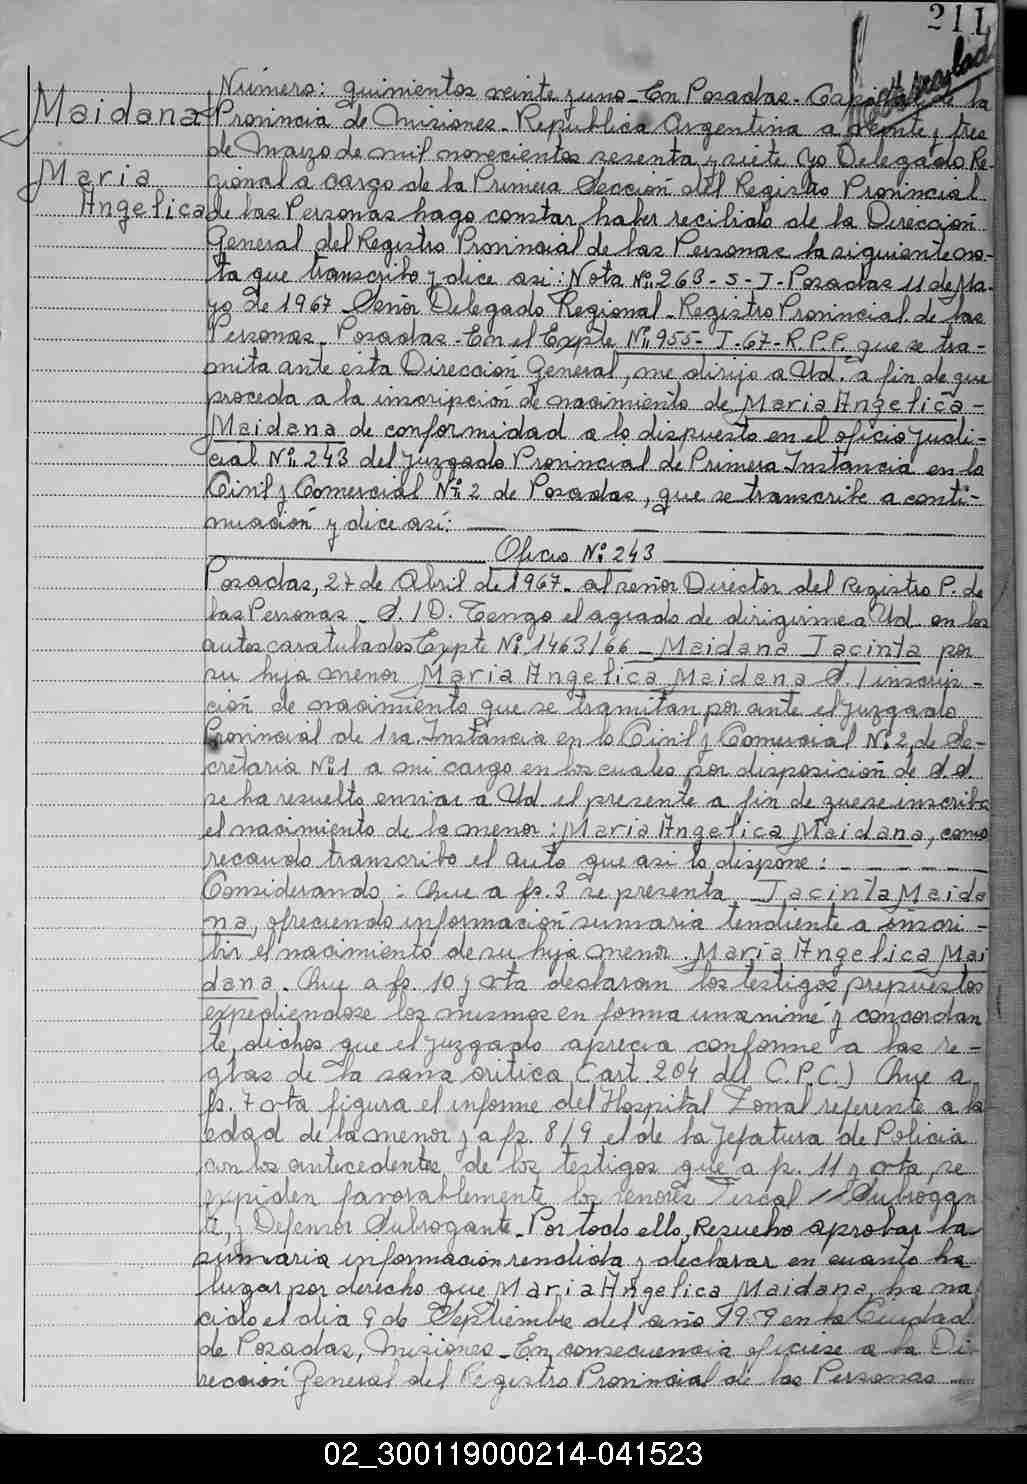 211
Maidana
Maria
Angelica
Número: quinientos veinte y uno - En Posadas - Capital de la
Provincia de Misiones - Republica Argentina a veinte y tres
de Marzo de mil novecientos sesenta y siete Yo Delegado Re-
gional a cargo de la Primera Sección del Registro Provincial
de las Personas hago constar haber recibido de la Dirección
General del Registro Provincial de las Personas la siguiente no-
ta que transcribo y dice asi: Nota Nº 263 - S - J - Posadas 11 de Ma-
yo de 1967 - Señor Delegado Regional - Registro Provincial de las
Personas - Posadas - En el Expte Nº 955 - J - 67 - R.P.P. que se tra-
mita ante esta Dirección General, me dirijo a Ud. a fin de que
proceda a la inscripción de nacimiento de Maria Angelica -
Maidana de conformidad a lo dispuesto en el oficio judi-
cial Nº 243 del Juzgado Provincial de Primera Instancia en lo
Civil y Comercial Nº 2 de Posadas, que se transcribe a conti-
nuación y dice asi:
Oficio Nº 243
Posadas, 27 de Abril de 1967 - al señor Director del Registro P. de
las Personas - S./D. Tengo el agrado de dirigirme a Ud. en los
autos caratulados Expte Nº 1463/66 - Maidana Jacinta por
su hija menor Maria Angelica Maidana S./ inscrip-
ción de nacimiento que se tramitan por ante el Juzgado
Provincial de 1ra. Instancia en lo Civil y Comercial Nº 2, de Se-
cretaria Nº 1 a mi cargo en los cuales por disposición de S.S.
se ha resuelto enviar a Ud el presente a fin de que se inscriba
el nacimiento de la menor: Maria Angelica Maidana, como
recaudo transcribo el auto que asi lo dispone:
Considerando: Que a fs. 3 se presenta Jacinta Maida
na, ofreciendo información sumaria tendiente a inscri-
bir el nacimiento de su hija menor Maria Angelica Mai
dana. Que a fs. 10 y vta declaran los testigos propuestos
expediendose los mismos en forma unanime y concordan
te, dichos que el Juzgado aprecia conforme a las re-
glas de la sana critica (art. 204 del C.P.C.) Que a
fs. 7 vta figura el informe del Hospital Zonal referente a la
edad de la menor y a fs. 8/9 el de la Jefatura de Policia
con los antecedentes de los testigos que a fs. 11 y vta, se
expiden favorablemente los señores Fiscal Subrogan
te, y Defensor Subrogante - Por todo ello, Resuelvo aprobar la
sumaria información rendida y declarar en cuanto ha
lugar por derecho que Maria Angelica Maidana, ha na
cido el dia 9 de Septiembre del año en la Ciudad
de Posadas, Misiones - En consecuencia oficiese a la Di-
rección General del Registro Provincial de las Personas
02_300119000214-041523